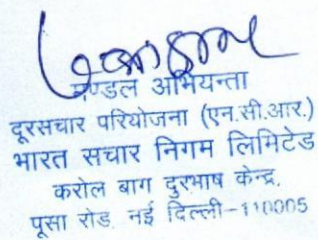 मण्डल अभियन्ता
दूरसचार परियोजना (एन.सी.आर.)
भारत सचार निगम लिमिटेड
करोल बाग दुरभाष केन्द्र,
पूसा रोड, नई दिल्ली-110005